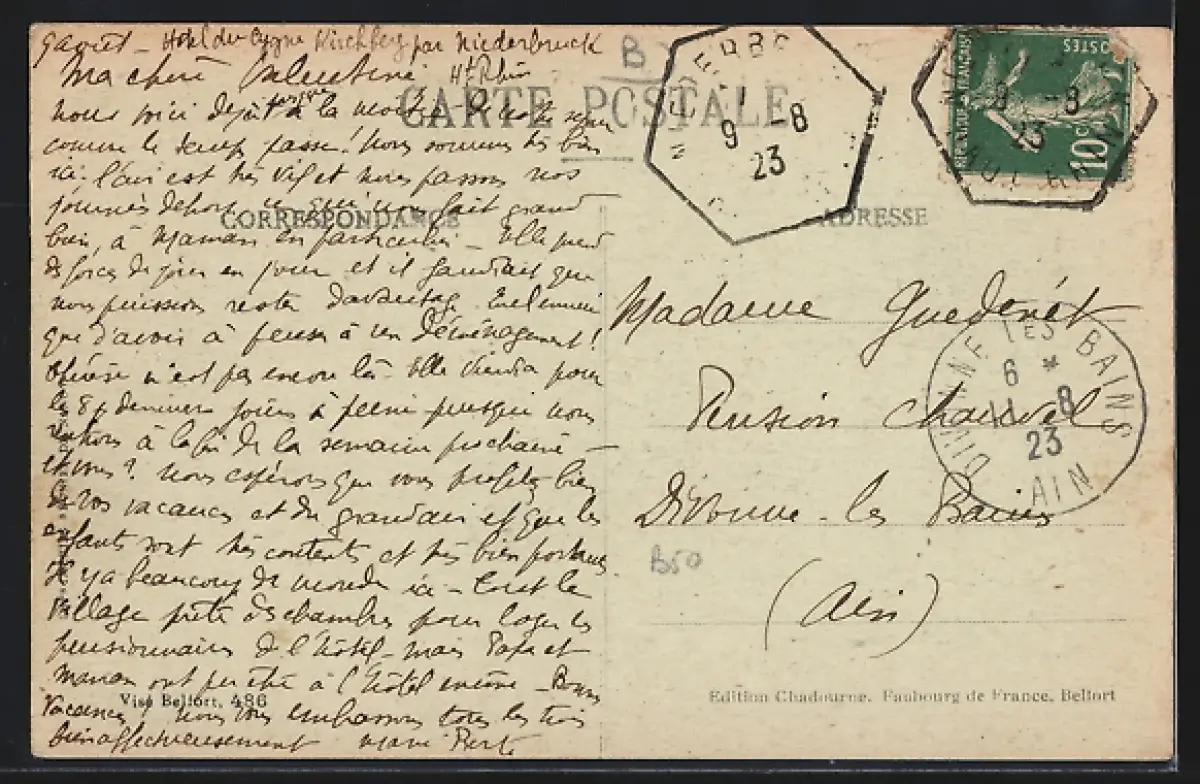 Hôtel du Cygne Kirchberg par Niederbruck
Ht Rhin
Ma chère Valentine
nous voici déjà presque à la moitié de notre séjour
comme le temps passe! Nous sommes très bien
ici. l'air est très vif et nous passons nos
journées dehors ce qui nous fait grand
bien, à Maman en particulier – Elle prend
des forces de jour en jour et il faudrait que
nous puissions rester davantage. Quel ennui
que d'avoir à penser à un déménagement!
n'est pas encore là – Elle viendra pour
les 8 derniers jours à peine puisque nous
rentrons à la fin de la semaine prochaine –
et vous? Nous espérons que vous profitez bien
de vos vacances et du grand air et que les
enfants sont très contents et très bien portants
Il y a beaucoup de monde ici – tout le
village prête des chambres pour loger les
pensionnaires de l'hôtel – mais Papa et
Maman ont pu être à l'hôtel même – Bonnes
vacances! nous vous embrassons tous les trois
bien affectueusement Marie
CARTE POSTALE
CORRESPONDANCE
ADRESSE
B
9 -8
23
9 -8
23
HAUT-RHIN
POSTES
10c
Madame Guedenét
Pension Chauvel
Divonne-les Bains
(Ain)
DIVONNE LES BAINS
6 *
11 8
23
AIN
B50
Visé Belfort, 486
Edition Chadourne, Faubourg de France, Belfort